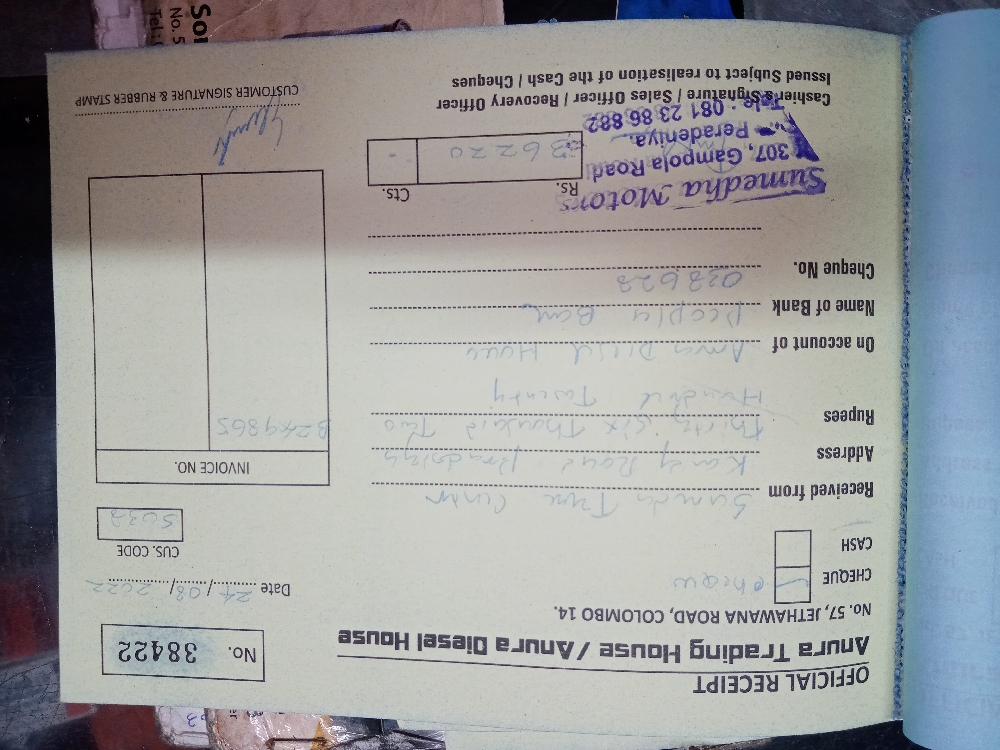 OFFICIAL RECEIPT
Anura Trading House / Anura Diesel House
No. 57, JETHAWANA ROAD, COLOMBO 14.
No. 38422
CHEQUE cheque
CASH
Date 24/08/2022
CUS. CODE
5032
Received from
Address Kandy Road
Rupees Thirty Six Thousand Two
Hundred Twenty
On account of Diesel House
Name of Bank Bank
Cheque No.
INVOICE NO.
B249865
Rs. Cts.
36220 -
Sumedha Motors
307, Gampola Road
Peradeniya.
Tele : 081 23 86 882
Cashier's Signature / Sales Officer / Recovery Officer
Issued Subject to realisation of the Cash / Cheques
CUSTOMER SIGNATURE & RUBBER STAMP
No. 5
Tel :